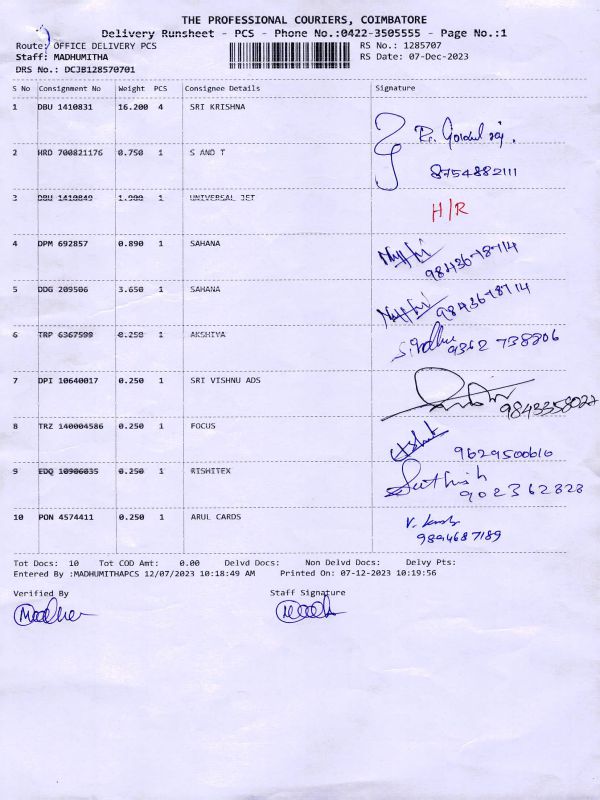 THE PROFESSIONAL COURIERS, COIMBATORE
Delivery Runsheet - PCS - Phone No.:0422-3505555 - Page No.:1
Route: OFFICE DELIVERY PCS
RS No.: 1285707
Staff: MADHUMITHA
RS Date: 07-Dec-2023
DRS No.: DCJB128570701
S No Consignment No Weight PCS Consignee Details Signature
1 DBU 1410831 16.200 4 SRI KRISHNA
R. Gokul raj.
2 HRO 700821176 0.750 1 S AND T 8754882111
3 DBU 1410849 1.900 1 UNIVERSAL JET H/R
4 DPM 692857 0.890 1 SAHANA 9843678714
5 DDG 209506 3.650 1 SAHANA 9843678714
6 TRP 6367599 0.250 1 AKSHIYA 9362 738806
7 DPI 10640017 0.250 1 SRI VISHNU ADS 9843358022
8 TRZ 140004586 0.250 1 FOCUS 9629500610
9 EDQ 10906035 0.250 1 RISHITEX Suthish 902362828
10 PON 4574411 0.250 1 ARUL CARDS
9894687189
Tot Docs: 10 Tot COD Amt: 0.00 Delvd Docs: Non Delvd Docs: Delvy Pts:
Entered By :MADHUMITHAPCS 12/07/2023 10:18:49 AM Printed On: 07-12-2023 10:19:56
Verified By Staff Signature